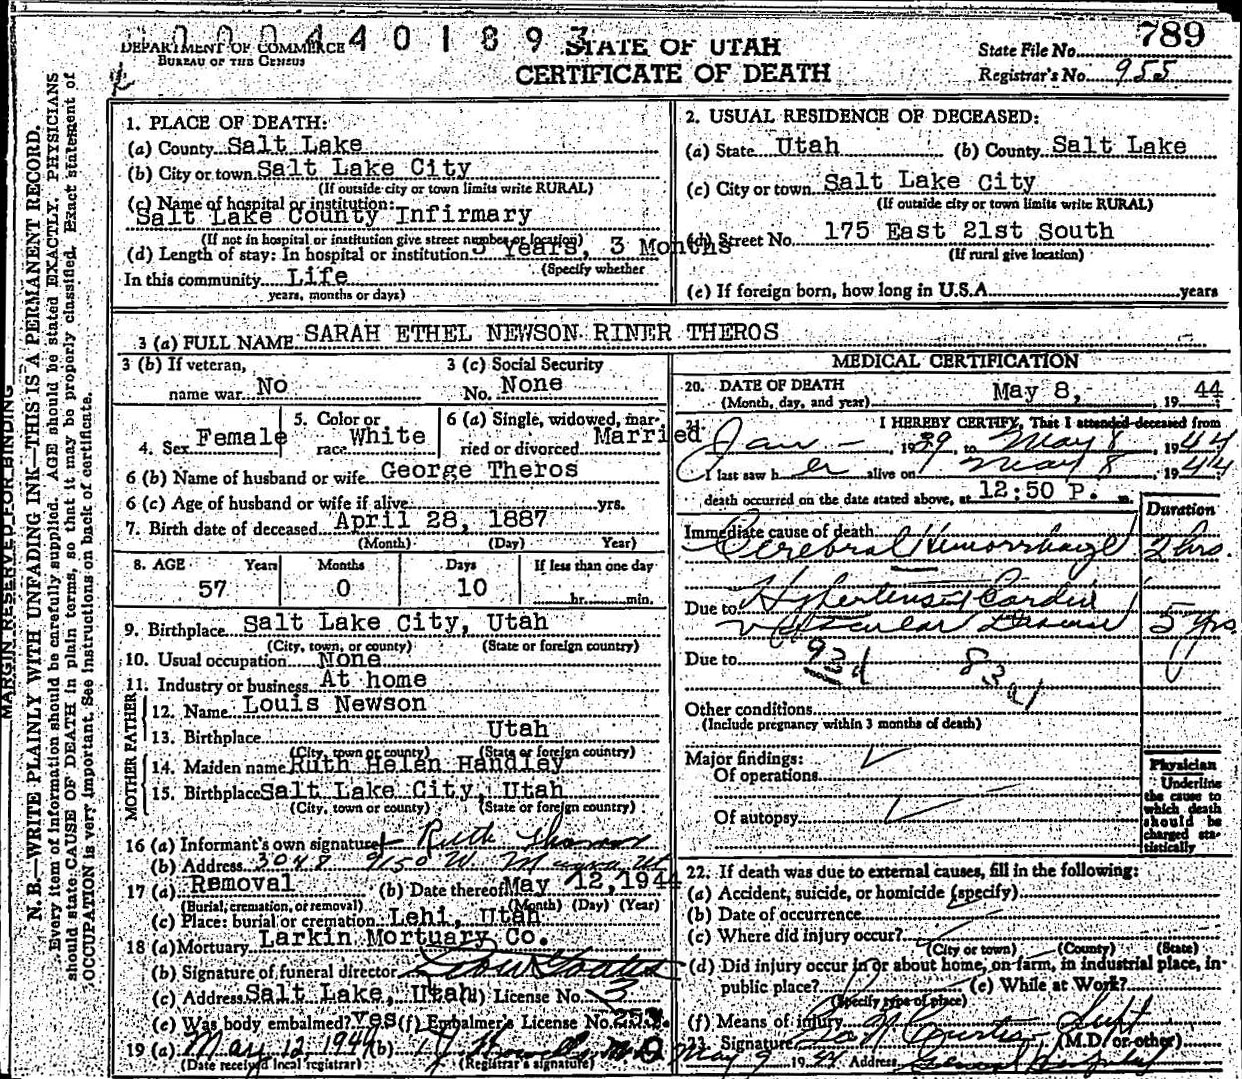 0 0 0 4 4 0 1 8 9 3
789
DEPARTMENT OF COMMERCE
BUREAU OF THE CENSUS
STATE OF UTAH
CERTIFICATE OF DEATH
State File No.
Registrar's No. 955
MARGIN RESERVED FOR BINDING
N. B.—WRITE PLAINLY WITH UNFADING INK—THIS IS A PERMANENT RECORD.
Every item of information should be carefully supplied. AGE should be stated EXACTLY. PHYSICIANS
should state CAUSE OF DEATH in plain terms, so that it may be properly classified. Exact statement of
OCCUPATION is very important. See instructions on back of certificate.
1. PLACE OF DEATH:
(a) County Salt Lake
(b) City or town Salt Lake City
(If outside city or town limits write RURAL)
(c) Name of hospital or institution:
Salt Lake County Infirmary
(If not in hospital or institution give street number or location)
(d) Length of stay: In hospital or institution Years, 3 Months
(Specify whether
In this community Life
years, months or days)
2. USUAL RESIDENCE OF DECEASED:
(a) State Utah (b) County Salt Lake
(c) City or town Salt Lake City
(If outside city or town limits write RURAL)
(d) Street No. 175 East 21st South
(If rural give location)
(e) If foreign born, how long in U.S.A. years
3 (a) FULL NAME SARAH ETHEL NEWSON RINER THEROS
3 (b) If veteran,
name war No
3 (c) Social Security
No. None
4. Sex Female
5. Color or
race White
6 (a) Single, widowed, mar-
ried or divorced Married
6 (b) Name of husband or wife George Theros
6 (c) Age of husband or wife if alive yrs.
7. Birth date of deceased April 28, 1887
(Month) (Day) Year)
8. AGE Years Months Days If less than one day
57 0 10 hr. min.
9. Birthplace Salt Lake City, Utah
(City, town, or county) (State or foreign country)
10. Usual occupation None
11. Industry or business At home
FATHER
12. Name Louis Newson
13. Birthplace Utah
(City, town or county) (State or foreign country)
MOTHER
14. Maiden name Ruth Helen Handley
15. Birthplace Salt Lake City, Utah
(City, town or county) (State or foreign country)
16 (a) Informant's own signature Ruth
(b) Address 3048 9150 W.
17 (a) Removal (b) Date thereof May 12, 1944
(Burial, cremation, or removal) (Month) (Day) (Year)
(c) Place: burial or cremation Lehi, Utah
18 (a) Mortuary Larkin Mortuary Co.
(b) Signature of funeral director
(c) Address Salt Lake, Utah (d) License No. 3
(e) Was body embalmed? Yes (f) Embalmer's License No. 253
19 (a) May 12, 1944 (b)
(Date received local registrar) (Registrar's signature)
MEDICAL CERTIFICATION
20. DATE OF DEATH May 8, 19 44
(Month, day, and year)
21. I HEREBY CERTIFY, That I attended deceased from
Jan - , 1939, to May 8, 1944
I last saw her alive on May 8, 1944
death occurred on the date stated above, at 12:50 P. m.
Duration
Immediate cause of death
Cerebral Hemorrhage 2 hrs.
Due to Hypertensive Cardio
vascular Disease 5 yrs.
Due to 93d 83a1
Other conditions
(Include pregnancy within 3 months of death)
Major findings:
Of operations
Of autopsy
Physician
Underline
the cause to
which death
should be
charged sta-
tistically
22. If death was due to external causes, fill in the following:
(a) Accident, suicide, or homicide (specify)
(b) Date of occurrence
(c) Where did injury occur?
(City or town) (County) (State)
(d) Did injury occur in or about home, on farm, in industrial place, in
public place? (e) While at Work?
(Specify type of place)
(f) Means of injury
23. Signature Supt (M.D. or other)
May 9 1944 Address